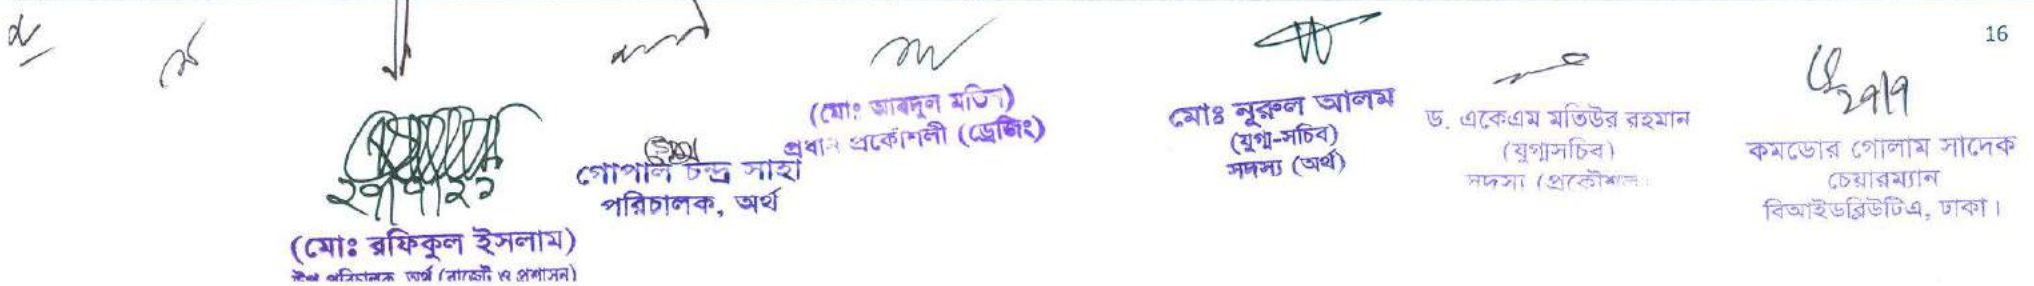 16
২৭/৭/২১
(মোঃ রফিকুল ইসলাম)
উপ পরিচালক অর্থ (বাজেট ও প্রশাসন)
গোপাল চন্দ্র সাহা
পরিচালক, অর্থ
(মোঃ আবদুল মতিন)
প্রধান প্রকৌশলী (ড্রেজিং)
মোঃ নূরুল আলম
(যুগ্ম-সচিব)
সদস্য (অর্থ)
ড. একেএম মতিউর রহমান
(যুগ্মসচিব)
সদস্য (প্রকৌশল)
২৭/৭
কমডোর গোলাম সাদেক
চেয়ারম্যান
বিআইডব্লিউটিএ, ঢাকা।